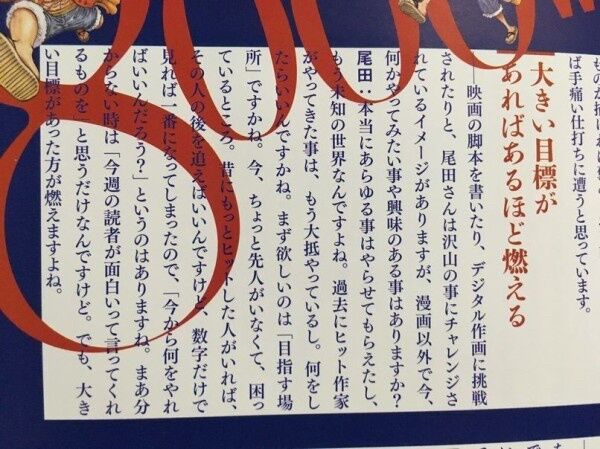 ば手痛い仕打ちに遭うと思っています。
大きい目標が
あればあるほど燃える
──映画の脚本を書いたり、デジタル作画に挑戦
されたりと、尾田さんは沢山の事にチャレンジさ
れているイメージがありますが、漫画以外で今、
何かやってみたい事や興味のある事はありますか?
尾田:本当にあらゆる事はやらせてもらえたし、
もう未知の世界なんですよね。過去にヒット作家
がやってきた事は、もう大抵やっているし。何をし
たらいいんですかね。まず欲しいのは「目指す場
所」ですかね。今、ちょっと先人がいなくて、困っ
ているところ。昔にもっとヒットした人がいれば、
その人の後を追えばいいんですけど、数字だけで
見れば一番になってしまったので、「今から何をやれ
ばいいんだろう?」というのはありますね。まあ分
からない時は「今週の読者が面白いって言ってくれ
るものを」と思うだけなんですけど。でも、大き
い目標があった方が燃えますよね。